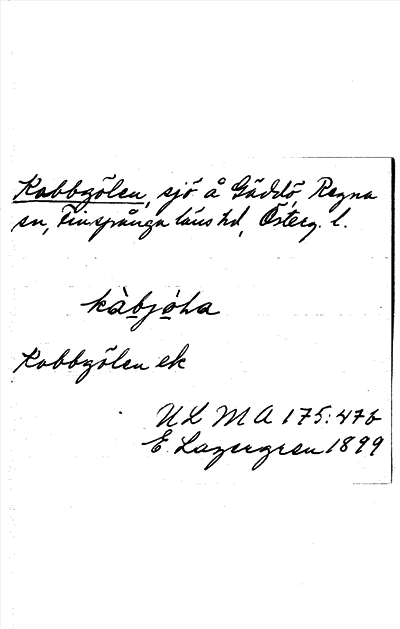 Kabbgölen, sjö å Gäddö, Regna
sn, Finspånga läns hd, Österg. l.
kàbjòLa
Kobbgölen ek
ULMA 175:47b
E. Lagergren 1899